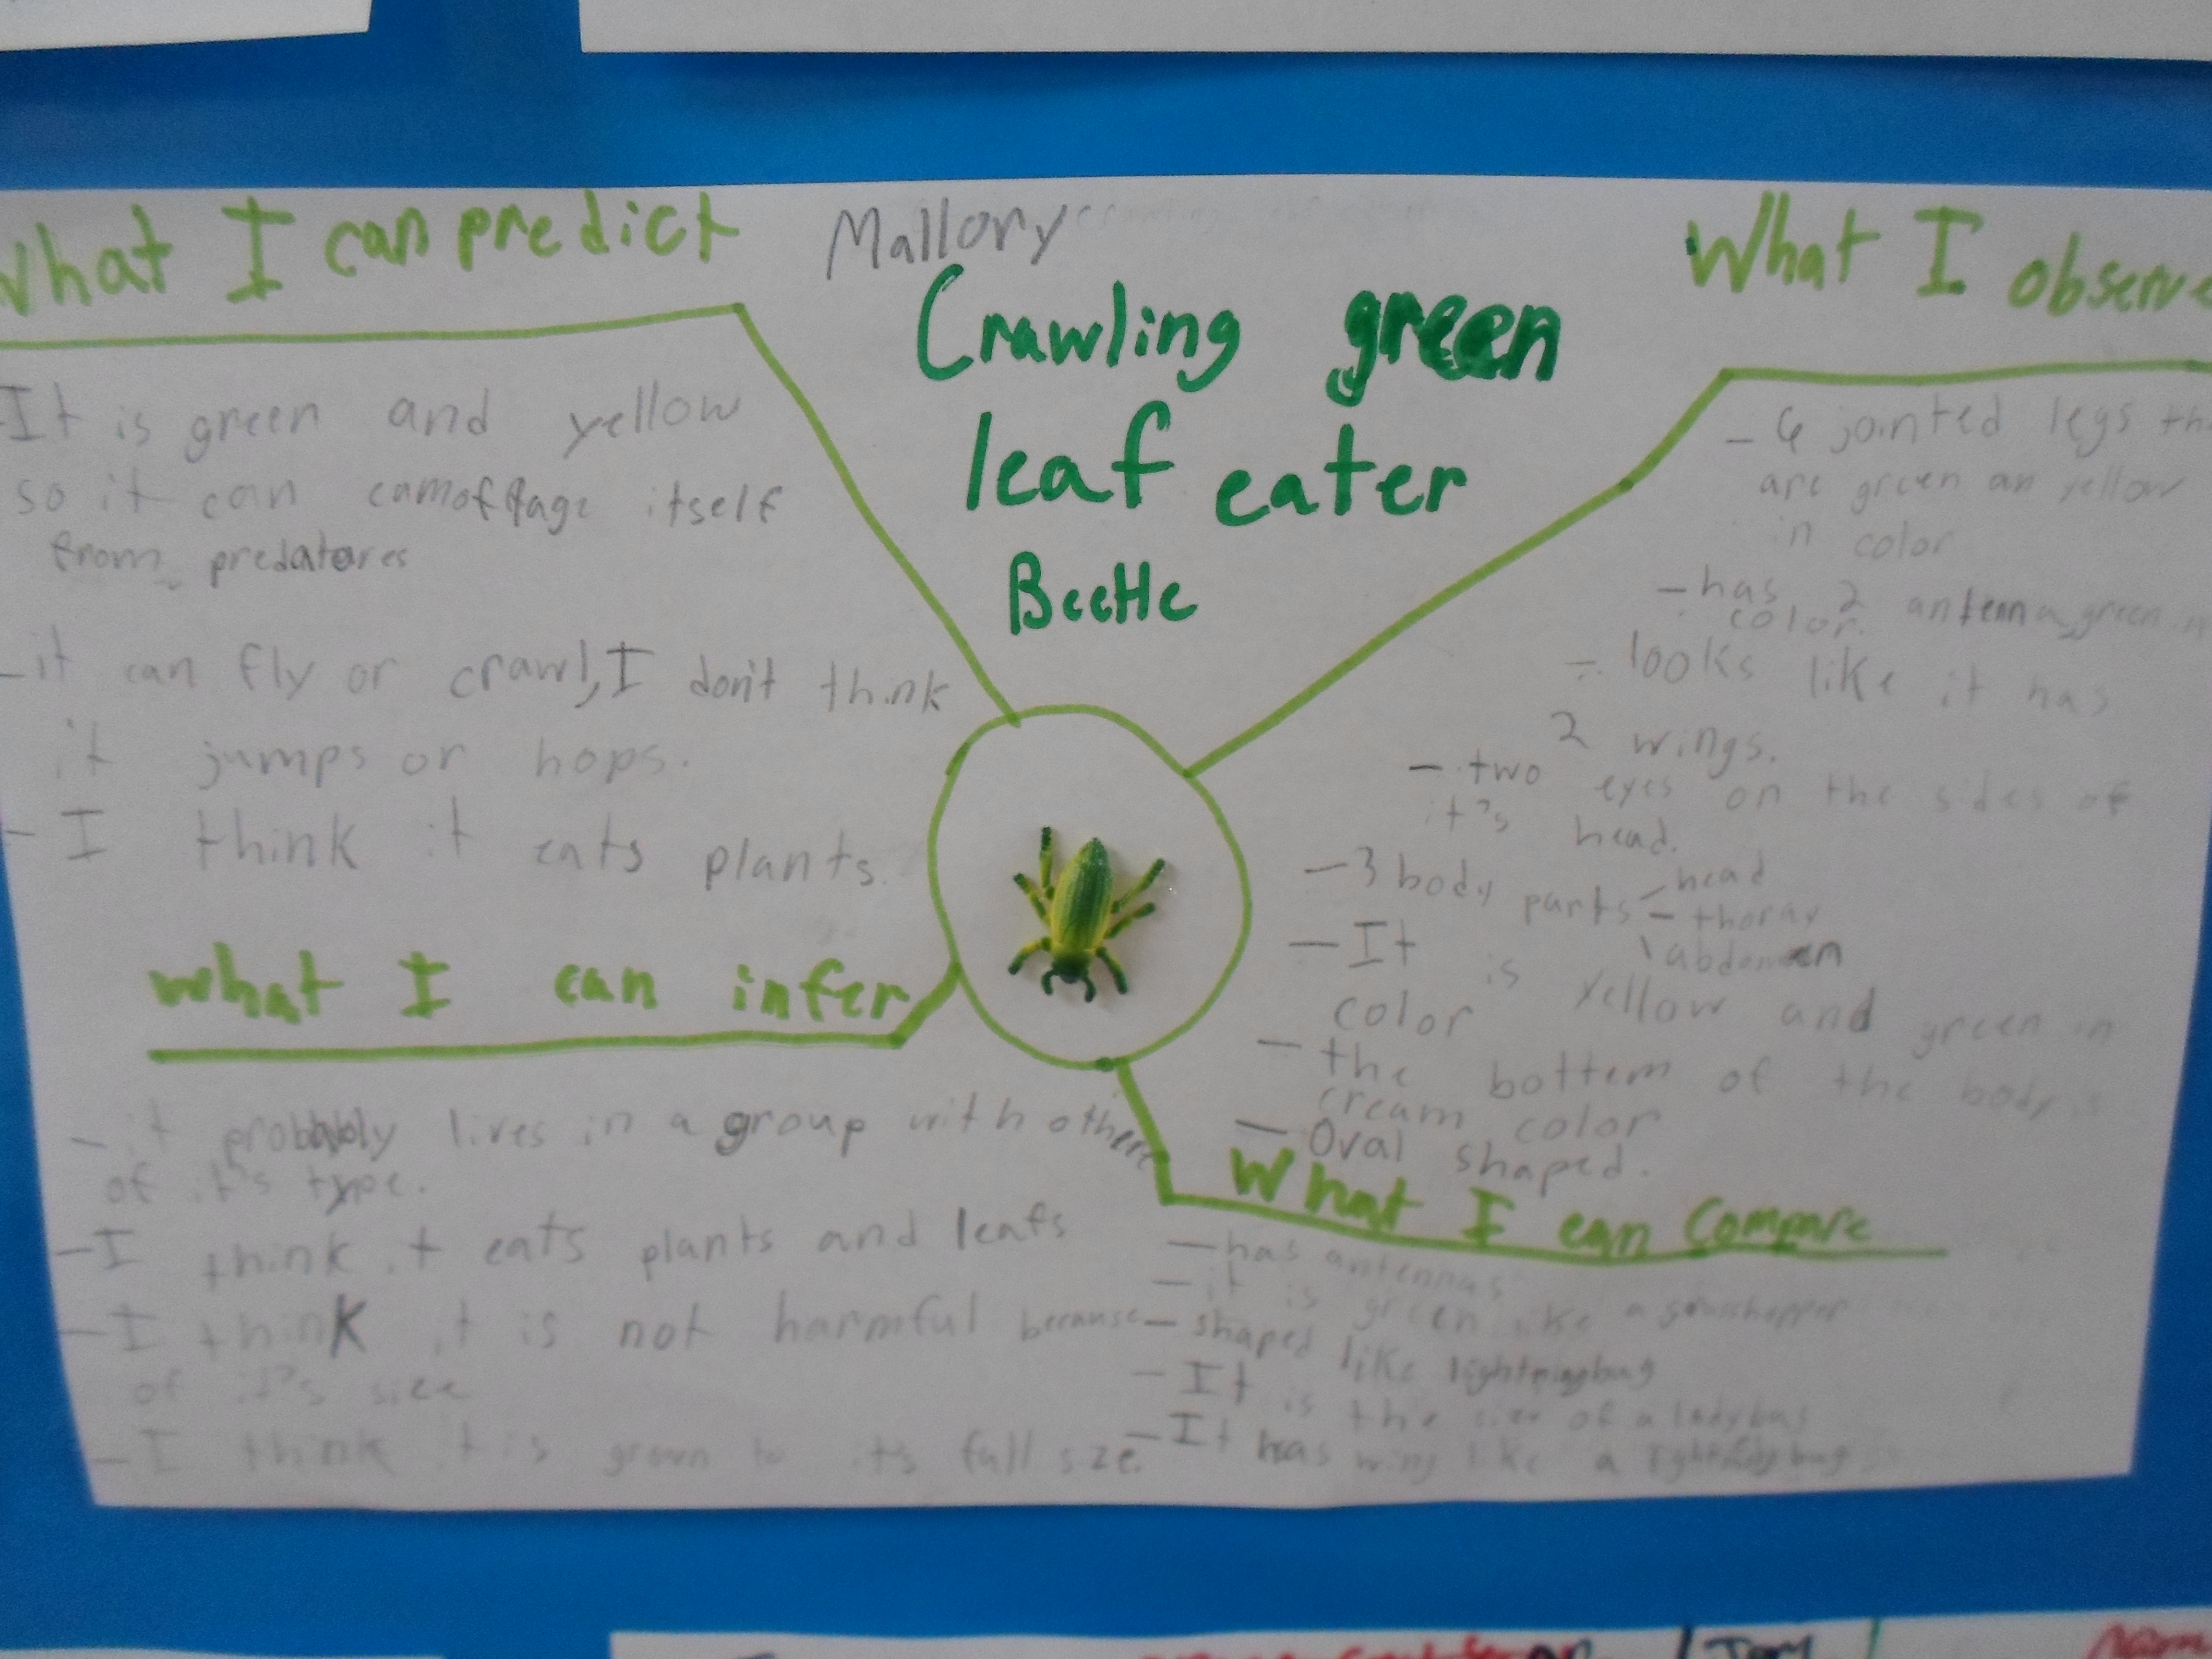 What I can predict
Mallory
Crawling green
leaf eater
Beetle
What I observe
It is green and yellow
so it can camofflage itself
from predatores
-it can fly or crawl, I don't think
it jumps or hops.
- I think it eats plants.
What I can infer
- it probably lives in a group with others
of it's type.
- I think it eats plants and leafs
- I think it is not harmful because
of it's size
- I think it is grown to it's full size.
- 6 jointed legs
are green an yellow
in color
- has 2 antenna, green in
color.
- looks like it has
2 wings.
- two eyes on the sides of
it's head.
- 3 body parts - head
- thorax
\ abdomen
- It is yellow and green in
color
- the bottem of the body is
cream color
- Oval shaped.
What I can Compare
- has antennas
- it is green like a grasshopper
- shaped like lightningbug
- It is the size of a ladybug
- It has wing like a